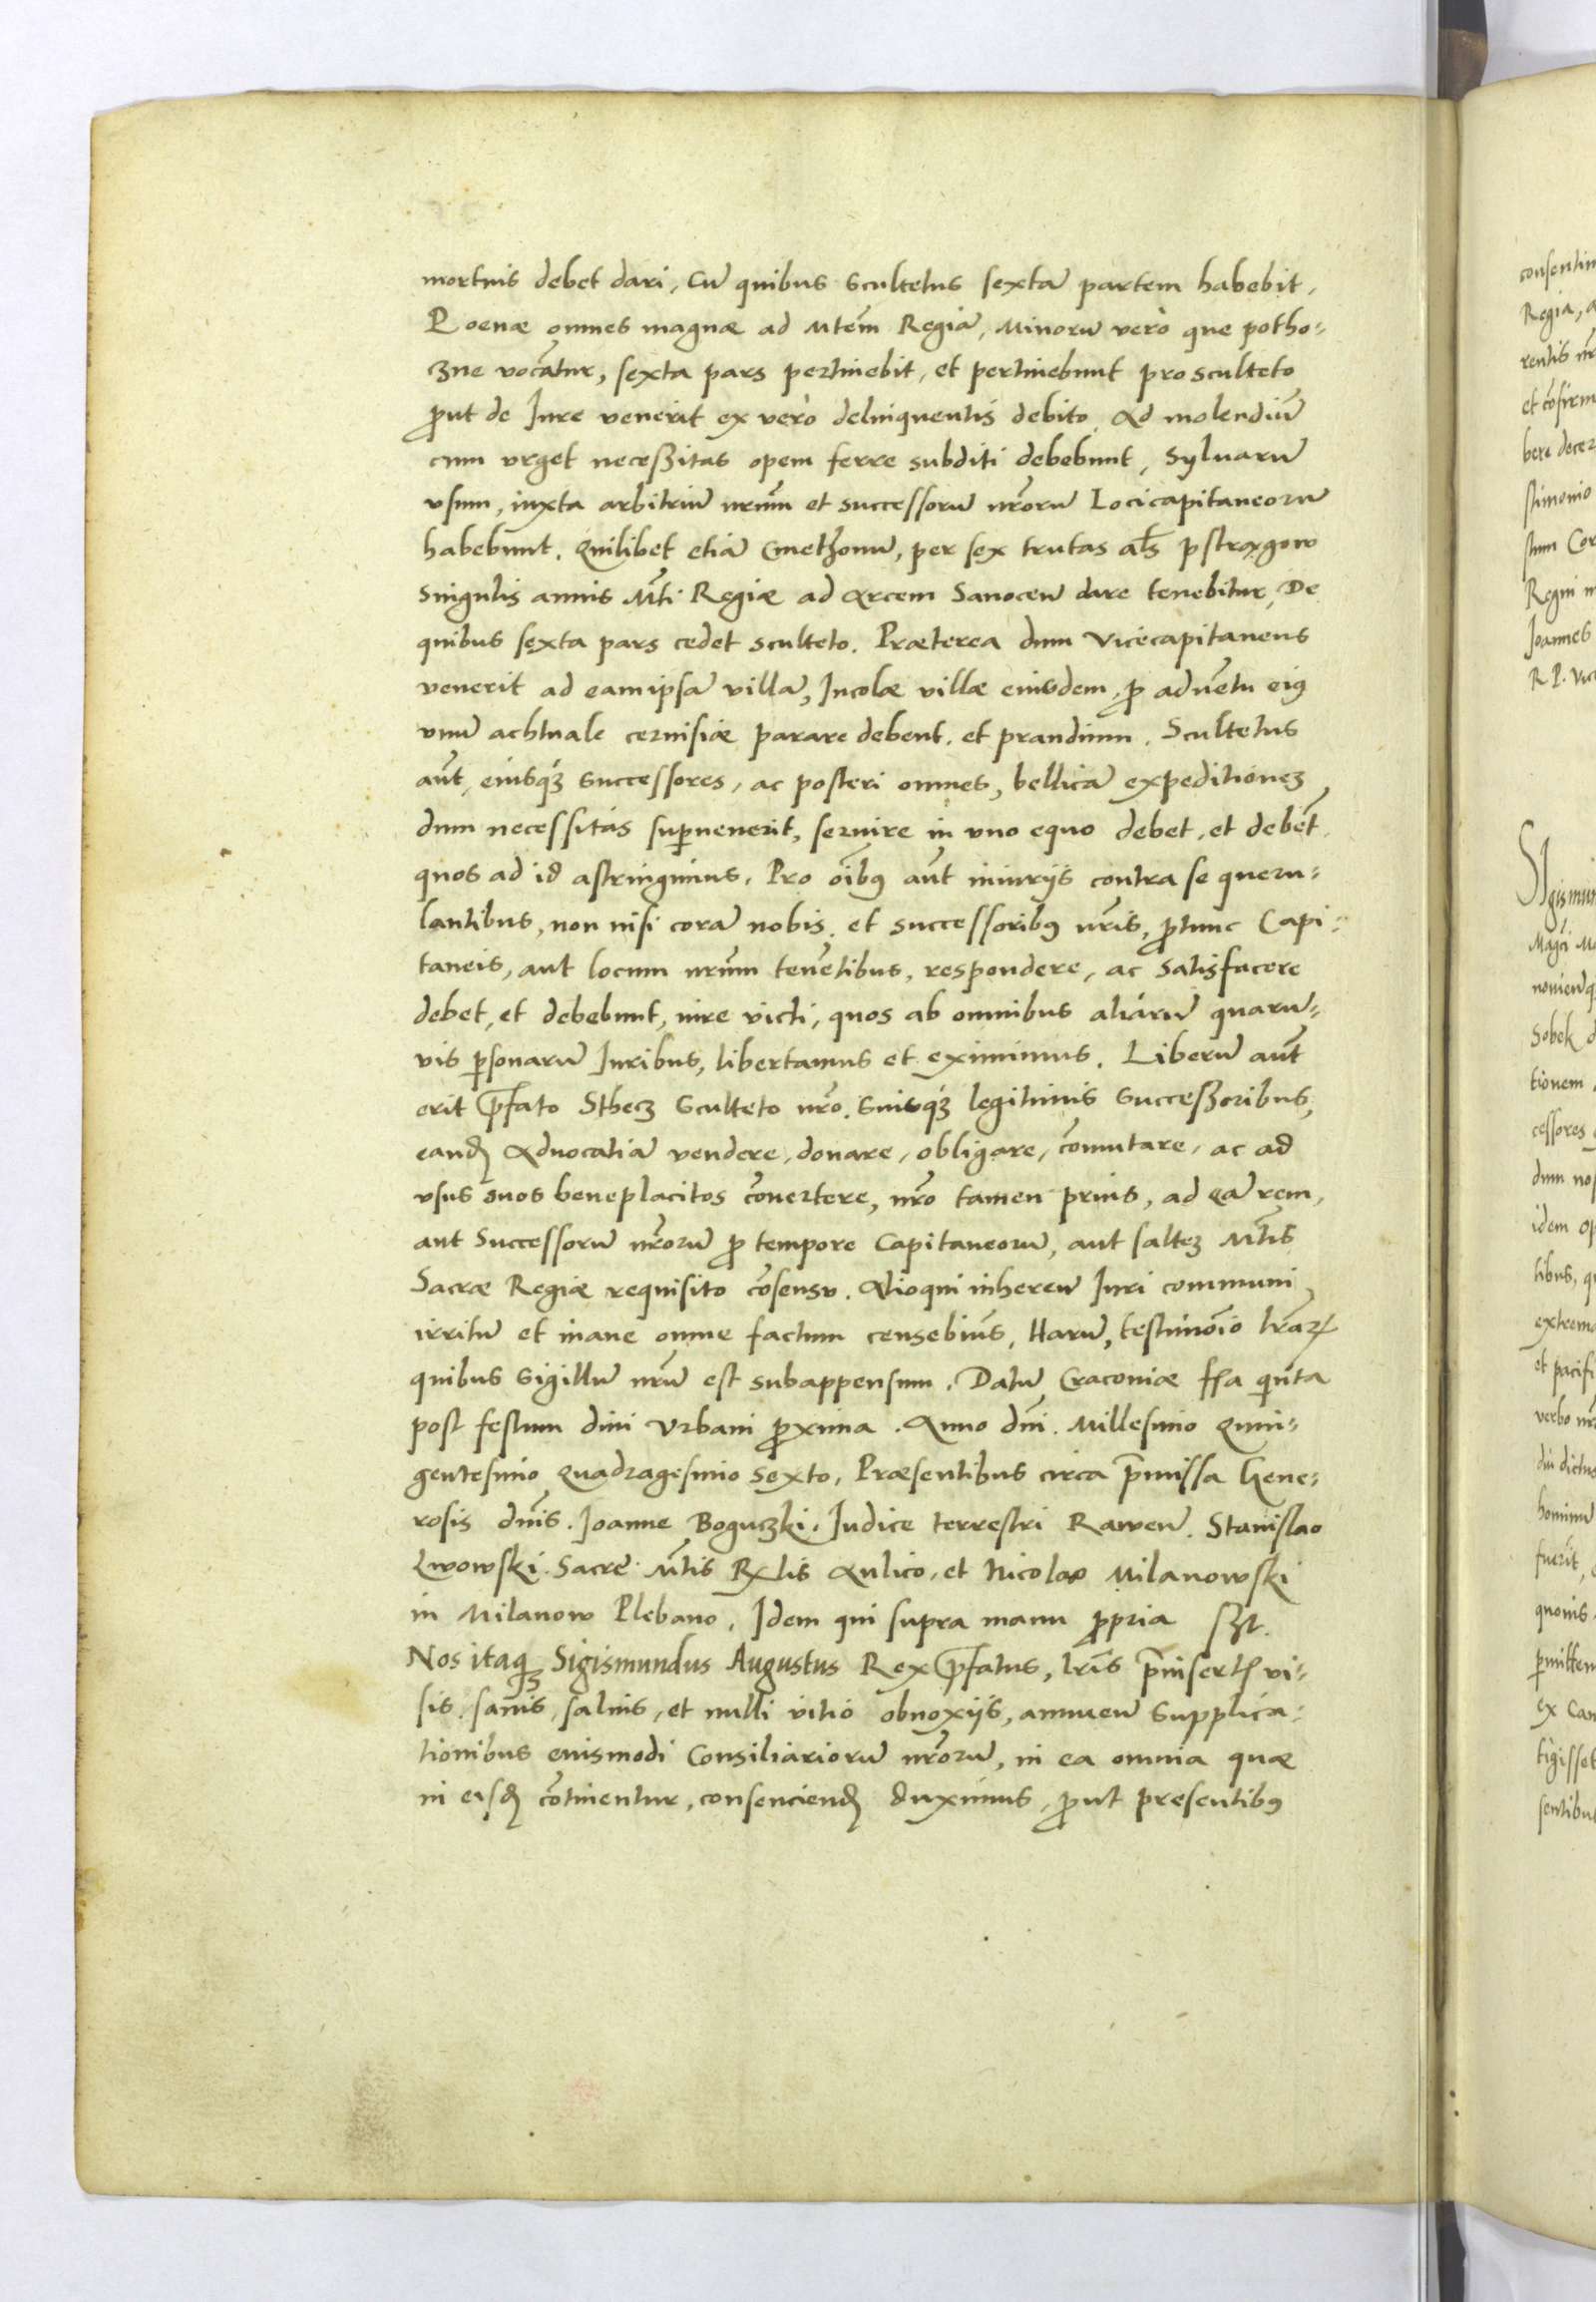 mortuis debet dari, Cū quibus Scultetus sextā partem habebit,
Poenæ omnes magnæ ad Mtēm Regiā, Minorū verò que potho-
zne vocātur, sexta pars pertinebit, et pertinebunt pro sculteto
ꝓut de Iure venerit ex vero delinquentis debito, Ad molendiū
cum vrget neceßitas opem ferre subditi debebunt, Syluarū
vsum, iuxta arbitriū nr̄um et successorū nr̄orū Locicapitaneorū
habebunt. Quilibet etiā Cmethonū, per sex trutas al̄s pstrągow
Singulis annis Mt̄i Regiæ ad Arcem Sanocen̄ dare tenebitur, De
quibus sexta pars cedet sculteto. Præterea dum Vicecapitaneus
venerit ad eam ipsā villā, Incolæ villæ eiusdem, ꝓ aduētu eiꝰ
vnū achtuale ceruisiæ parare debent, et prandium. Scultetus
aūt, eiusqꝫ successores, ac posteri omnes, bellicā expeditionez
dum necessitas suꝑuenerit, seruire in vno equo debet, et debēt
quos ad id astringimus, Pro oībꝰ aūt iniurijs contra se queru-
lantibus, non nisi corā nobis, et successoribꝰ nr̄is, ꝓtunc Capi-
taneis, aut locum nr̄um tenētibus, respondere, ac satisfacere
debet, et debebunt, iure victi, quos ab omnibus aliarū quaru-
vis ꝑsonarū Iuribus, libertamus et eximimus. Liberū aūt
erit p̄fato Stecz Sculteto nr̄o, suisqꝫ legitimis Succeßoribus,
eand̄ Aduocatiā vendere, donare, obligare, cōmutare, ac ad
vsus suos beneplacitos cōuertere, nr̄o tamen prius, ad eā rem,
aut Successorū nr̄orū ꝓ tempore Capitaneorū, aut saltez Mt̄is
Sacræ Regiæ requisito cōsensu. Alioqui inheren̄ Iuri communi,
irritū et inane omne factum censebimꝰ, Harū, testimōio lr̄arꝝ
quibus Sigillū nr̄ū est subappensum. Datū Cracoviæ f̄ia quīta
post festum diui Vrbani ꝓxima. Anno dn̄i. Millesimo Quin-
gentesimo Quadragesimo Sexto, Præsentibus circa p̄missa Gene-
rosis dn̄is. Joanne Boguczki, Judice terrestri Rawen̄. Stanislao
Lwowski. Sacre Mt̄is Rx̄lis Aulico, et Nicolao Milanowski
in Milanow Plebano, Idem qui supra manu ꝓpria sszt.
Nos itaqꝫ Sigismundus Augustus Rex p̄fatus, lr̄is p̄insert̄ vi-
sis, sanis, saluis, et nulli vitio obnoxijs, annuen̄ Supplica-
tionibus euismodi Consiliariorū nr̄orū, in ea omnia quæ
in eisd̄ cōtinentur, consenciend̄ duximus, ꝓut presentibꝰ
consentim
Regia, a
rentis nr̄
et cōfirm
bere decer
stimonio
stum Cor
Regni n
Joannes
R. P. Vic
SIgismun
Mag̃ci Ma
Sobek d
tionem
cessores
dum nos
idem op
tibus, qu
extrema
et pacifi
verbo nr̄
diu dictus
hominū
fuerit,
quouis
ꝑmitten
ex Can
tigisset
sentibus